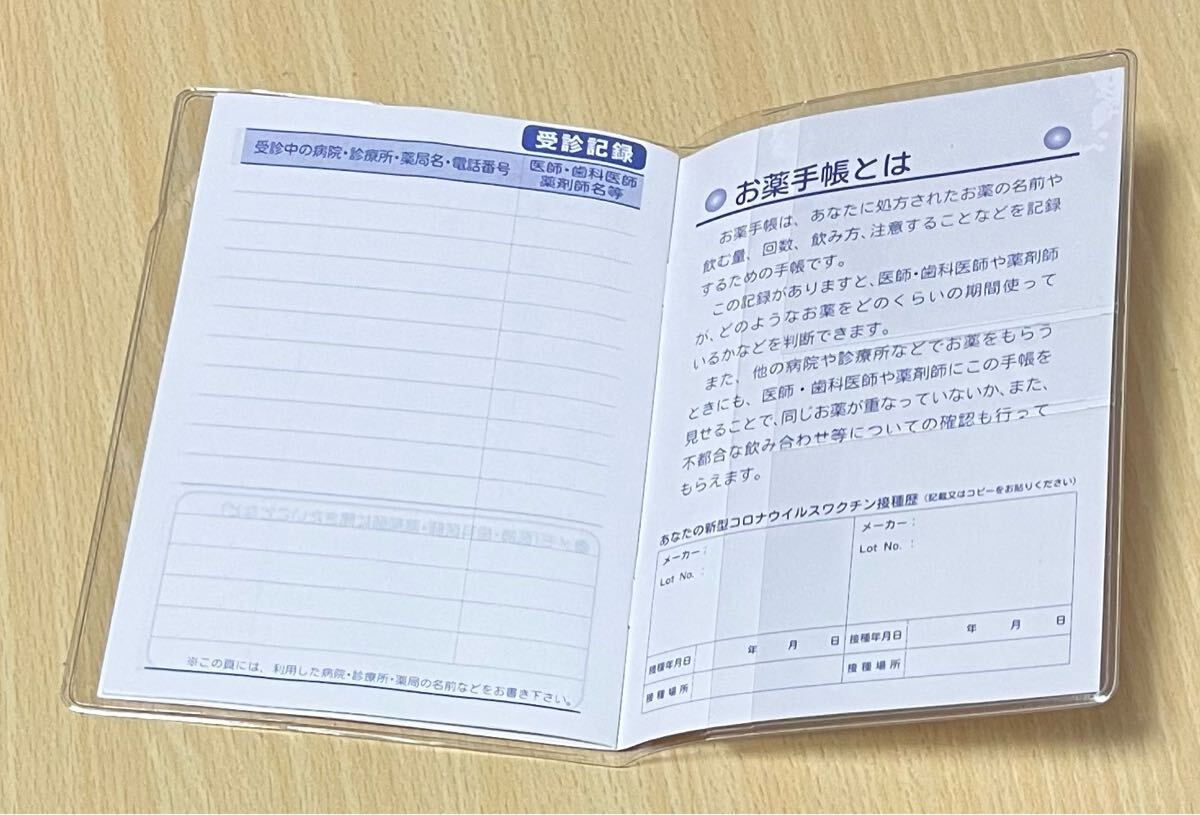 受診記録
受診中の病院・診療所・薬局名・電話番号
医師・歯科医師
薬剤師名等
※この頁には、利用した病院・診療所・薬局の名前などをお書き下さい。
お薬手帳とは
お薬手帳は、あなたに処方されたお薬の名前や
飲む量、回数、飲み方、注意することなどを記録
するための手帳です。
この記録がありますと、医師・歯科医師や薬剤師
が、どのようなお薬をどのくらいの期間使って
いるかなどを判断できます。
また、他の病院や診療所などでお薬をもらう
ときにも、医師・歯科医師や薬剤師にこの手帳を
見せることで、同じお薬が重なっていないか、また、
不都合な飲み合わせ等についての確認も行って
もらえます。
あなたの新型コロナウイルスワクチン接種歴（記載又はコピーをお貼りください）
メーカー：
Lot No. ：
メーカー：
Lot No. ：
接種年月日 年 月 日
接種年月日 年 月 日
接種場所
接種場所